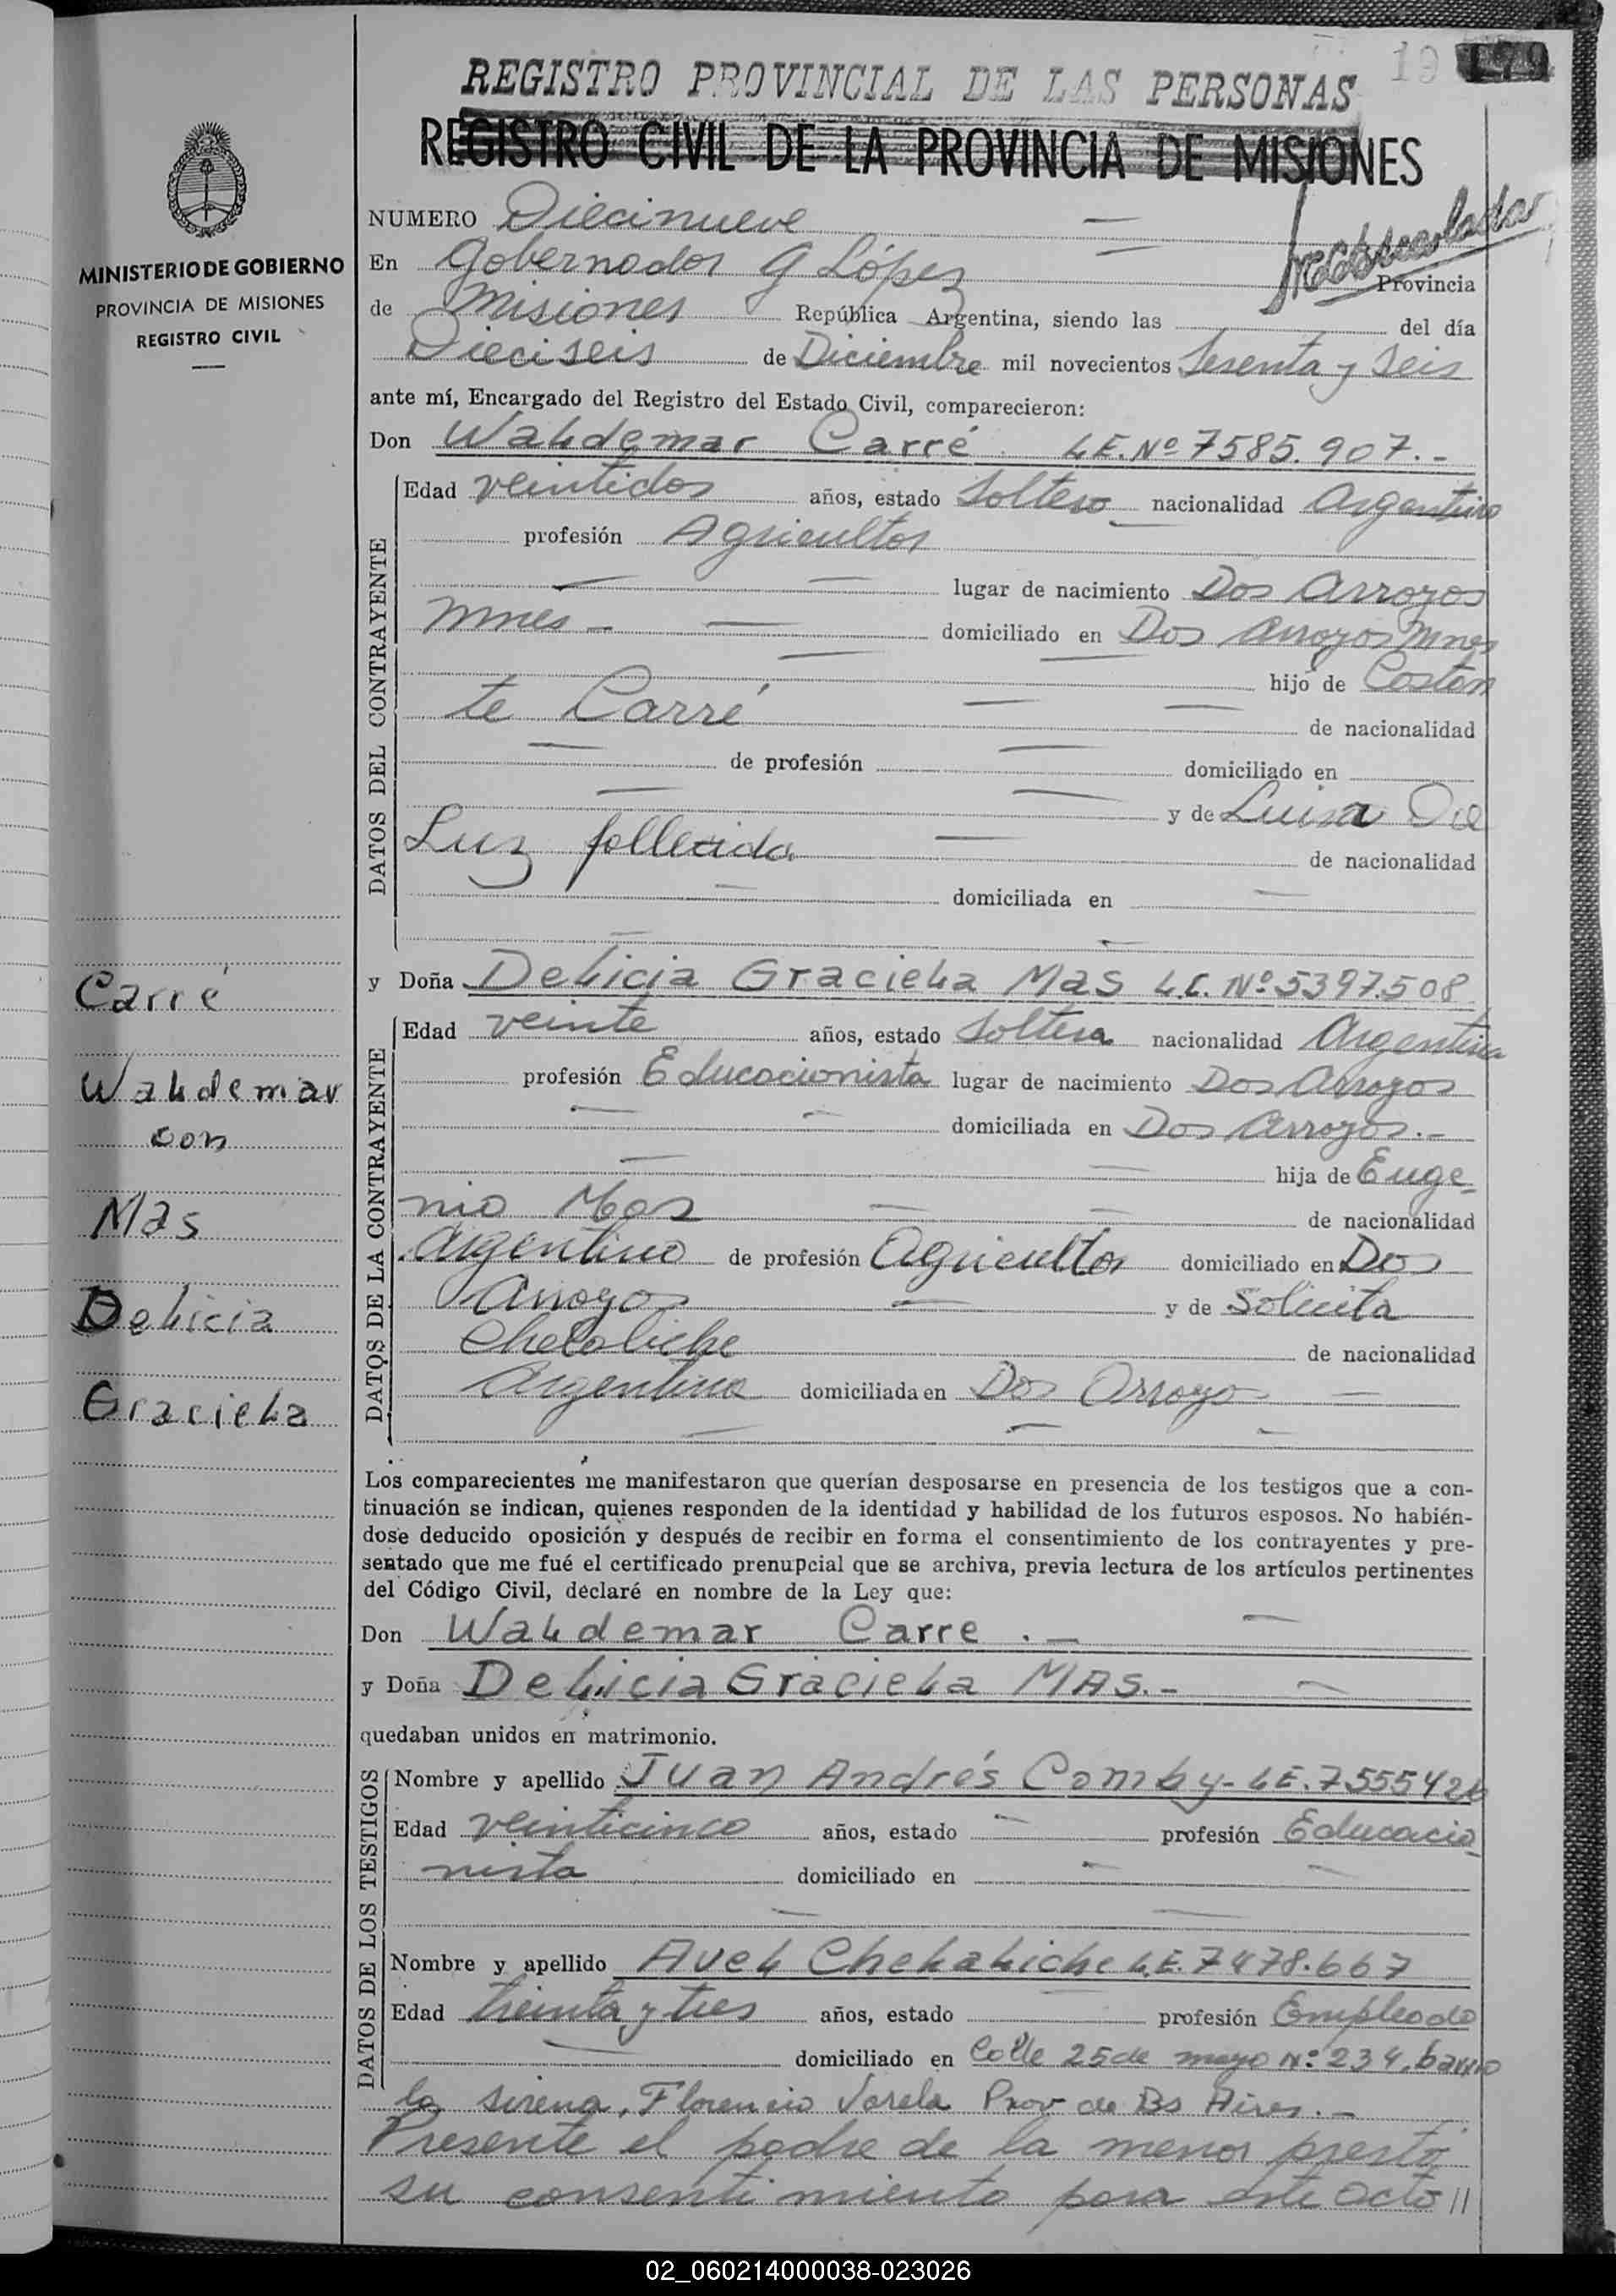 19 179
REGISTRO PROVINCIAL DE LAS PERSONAS
REGISTRO CIVIL DE LA PROVINCIA DE MISIONES
MINISTERIO DE GOBIERNO
PROVINCIA DE MISIONES
REGISTRO CIVIL
NUMERO Diecinueve
En Gobernador G López Provincia
de Misiones República Argentina, siendo las del día
Dieciseis de Diciembre mil novecientos Sesenta y Seis
ante mí, Encargado del Registro del Estado Civil, comparecieron:
Don Waldemar Carré L.E. Nº 7585.907.-
DATOS DEL CONTRAYENTE
Edad veintidos años, estado Soltero nacionalidad Argentino
profesión Agricultor
lugar de nacimiento Dos Arroyos
Mnes - domiciliado en Dos Arroyos Mnes
hijo de Costan
te Carré de nacionalidad
de profesión domiciliado en
y de Luisa Da
Luz fallecida de nacionalidad
domiciliada en
y Doña Delicia Graciela Mas L.C. Nº 5397.508
DATOS DE LA CONTRAYENTE
Edad veinte años, estado Soltera nacionalidad Argentina
profesión Educacionista lugar de nacimiento Dos Arroyos
domiciliada en Dos Arroyos.-
hija de Euge
nio Mas de nacionalidad
Argentino de profesión Agricultor domiciliado en Dos
Arroyos y de Solicita
Chelaliche de nacionalidad
Argentina domiciliada en Dos Arroyos
Carré
Waldemar
con
Mas
Delicia
Graciela
Los comparecientes me manifestaron que querían desposarse en presencia de los testigos que a con-
tinuación se indican, quienes responden de la identidad y habilidad de los futuros esposos. No habién-
dose deducido oposición y después de recibir en forma el consentimiento de los contrayentes y pre-
sentado que me fué el certificado prenupcial que se archiva, previa lectura de los artículos pertinentes
del Código Civil, declaré en nombre de la Ley que:
Don Waldemar Carre .-
y Doña Delicia Graciela MAS.-
quedaban unidos en matrimonio.
DATOS DE LOS TESTIGOS
Nombre y apellido Juan Andrés Comby - L.E. 7555426
Edad veinticinco años, estado profesión Educacio
nista domiciliado en
Nombre y apellido Avel Chelaliche L.E. 7478.667
Edad treinta y tres años, estado profesión Empleado
domiciliado en Calle 25 de mayo Nº 234. barrio
la sirena, Florencio Varela Prov de Bs Aires.-
Presente el padre de la menor prestó
su consentimiento para este acto //
02_060214000038-023026